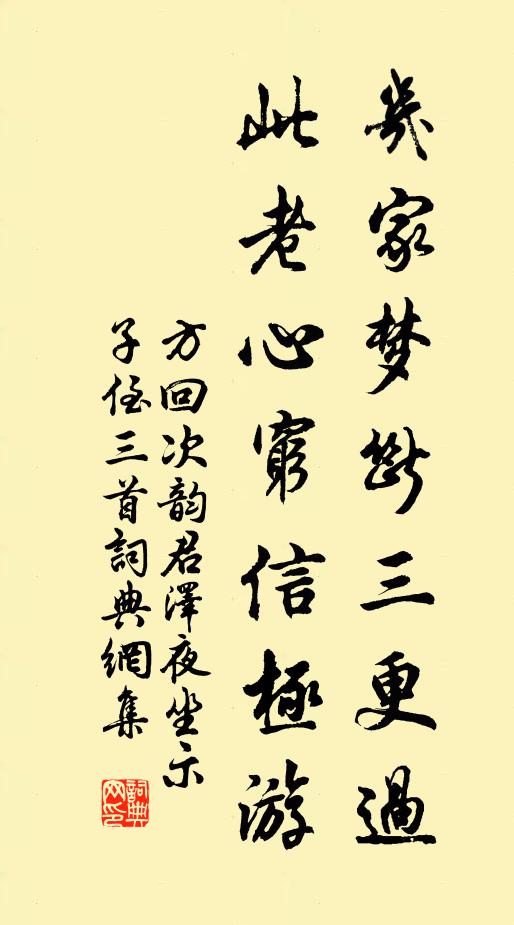 幾家梦断三更過
此老心窮信極游
方回次韵君澤夜坐示
子侄三首詞典網集
詞典
网印